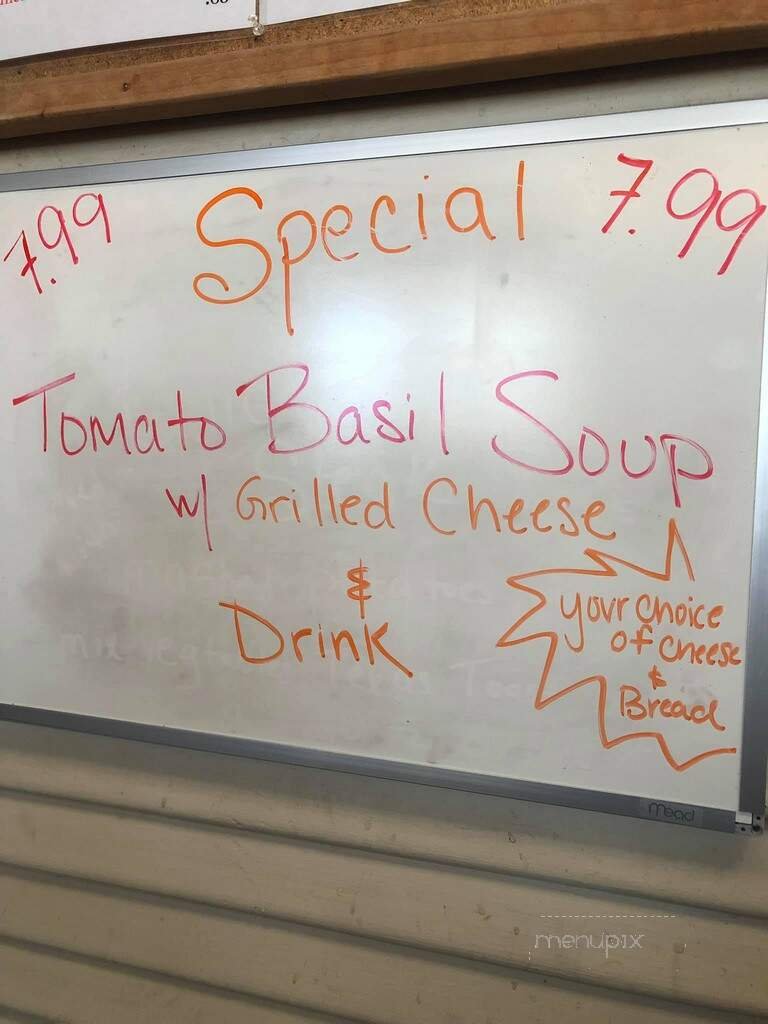 .00
7.99 Special 7.99
Tomato Basil Soup
w/ Grilled Cheese
&
Drink
your choice
of cheese
&
Bread
Mead
menupix